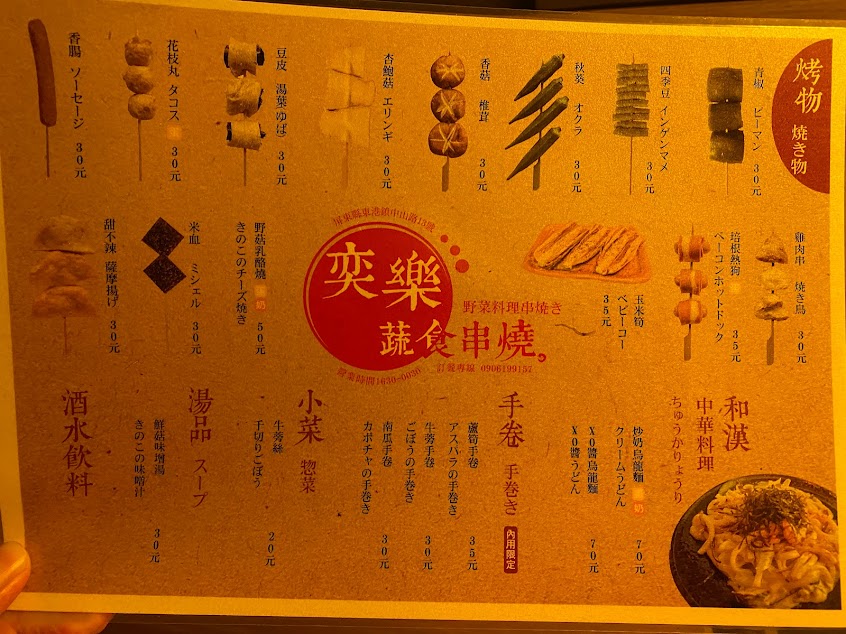 烤物 焼き物
青椒 ピーマン 30元
四季豆 インゲンマメ 30元
秋葵 オクラ 30元
香菇 椎茸 30元
杏鮑菇 エリンギ 30元
豆皮 湯葉(ゆば) 30元
花枝丸 タコス 30元
香腸 ソーセージ 30元
雞肉串 焼き鳥 30元
培根熱狗
ベーコンホットドック 35元
玉米筍 ベビーコー
35元
屏東縣東港鎮中山路13號
奕樂
野菜料理串焼き
蔬食串燒
訂餐專線 0906199157
營業時間1630~0030
野菇乳酪燒 奶 50元
きのこのチーズ焼き
米血 ミシェル 30元
甜不辣 薩摩揚げ 30元
和漢
中華料理
ちゅうかりょうり
炒奶烏龍麵 奶 70元
クリームうどん
XO醬烏龍麵 70元
XO醬うどん
手卷 手巻き 內用限定
蘆筍手卷 35元
アスパラの手巻き
牛蒡手卷 30元
ごぼうの手巻き
南瓜手卷 30元
カボチャの手巻き
小菜 惣菜
牛蒡絲 20元
手切りごぼう
湯品 スープ
鮮菇味增湯 30元
きのこの味噌汁
酒水飲料